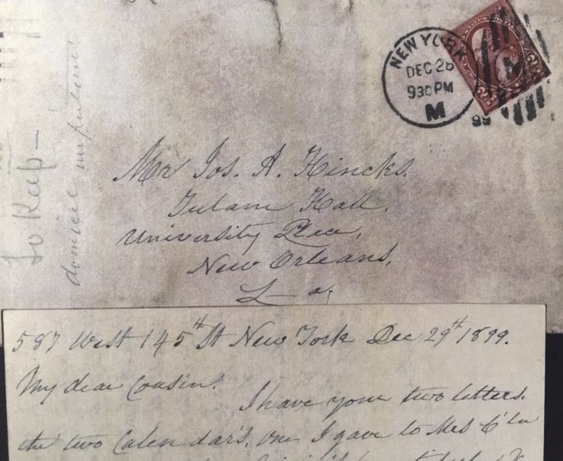 NEW YORK
DEC 28
930PM
M
99
Mr Jos. A. Hincks.
Tulane Hall,
University Place,
New Orleans,
La,
To Rap-
587 West 145th St New York Dec 29th 1899.
My dear Cousin.
I have your two letters.
the two Calendars, one I gave to Mrs